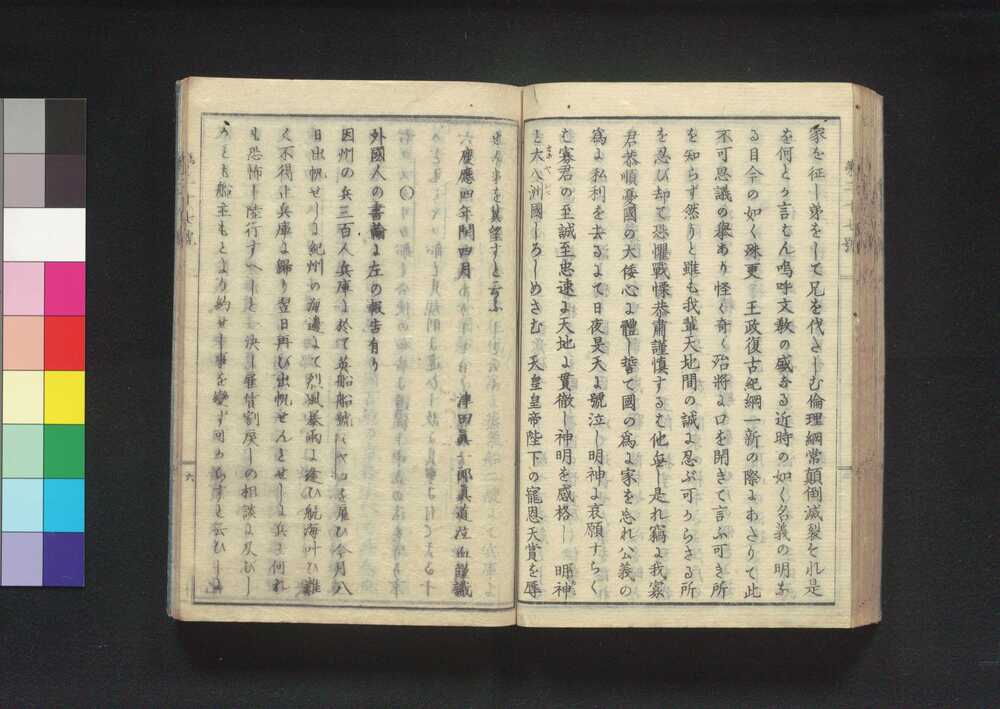 家を征し弟をして兄を伐さしむ倫理綱常顛倒滅裂それ是
を何とか言はん嗚呼文教の盛なる近時の如く名義の明な
る目今の如く殊更 王政復古紀綱一新の際よおさりて此
不可思議の擧あり怪く奇く殆將よ口を開きて言ふ可き所
を知らず然りと雖も我輩天地間の誠よ忍ぶ可からさる所
を忍び却て恐懼戰慄恭肅謹慎するも他無し是れ竊よ我寡
君恭順憂國の大倭心よ體し誓て國の爲よ家を忘れ公義の
爲よ私利を去るよて日夜旻天よ號泣し明神よ哀願すらく
む寡君の至誠至忠速よ天地よ貫徹し神明を感格し 明神
と大八洲國しろしめさむ 天皇皇帝陛下の寵恩天賞を辱
せん事を冀望すと云ふ
慶應四年閏四月 津田眞一郎眞道泣血謹識
外國人の書翰よ左の報告有り
因州の兵三百人兵庫よ於て英船 を雇ひ今月八
日出帆せしよ紀州の海邊よて烈風暴雨よ逢ひ航海叶ひ難
く不得止兵庫よ歸り翌日再び出帆せんとせしよ兵士何れ
も恐怖し陸行すへしと一決し雇賃割戻しの相談よ及びし
かども船主もとより約せし事を變ず可からずと云ひし
第二十七號
六